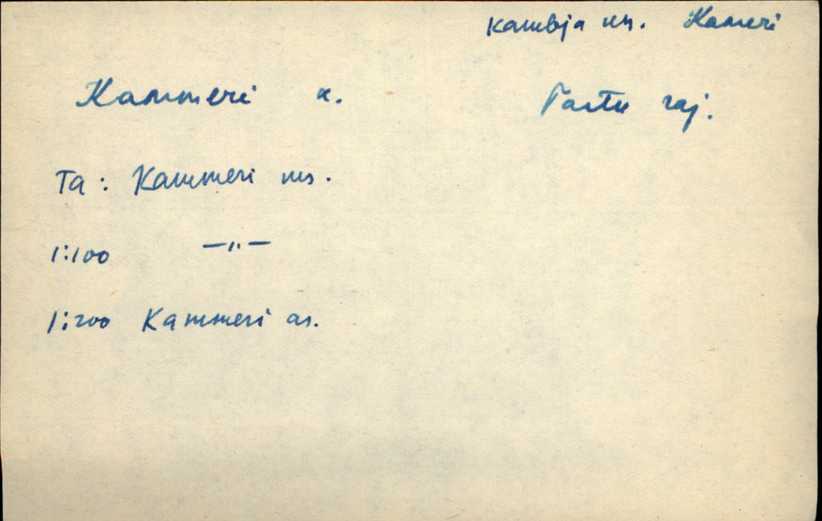 Kambja kn. Kameri
Kammeri k. Tartu raj.
Ta: Kammeri ms.
1:100 —„—
1:200 Kammeri as.